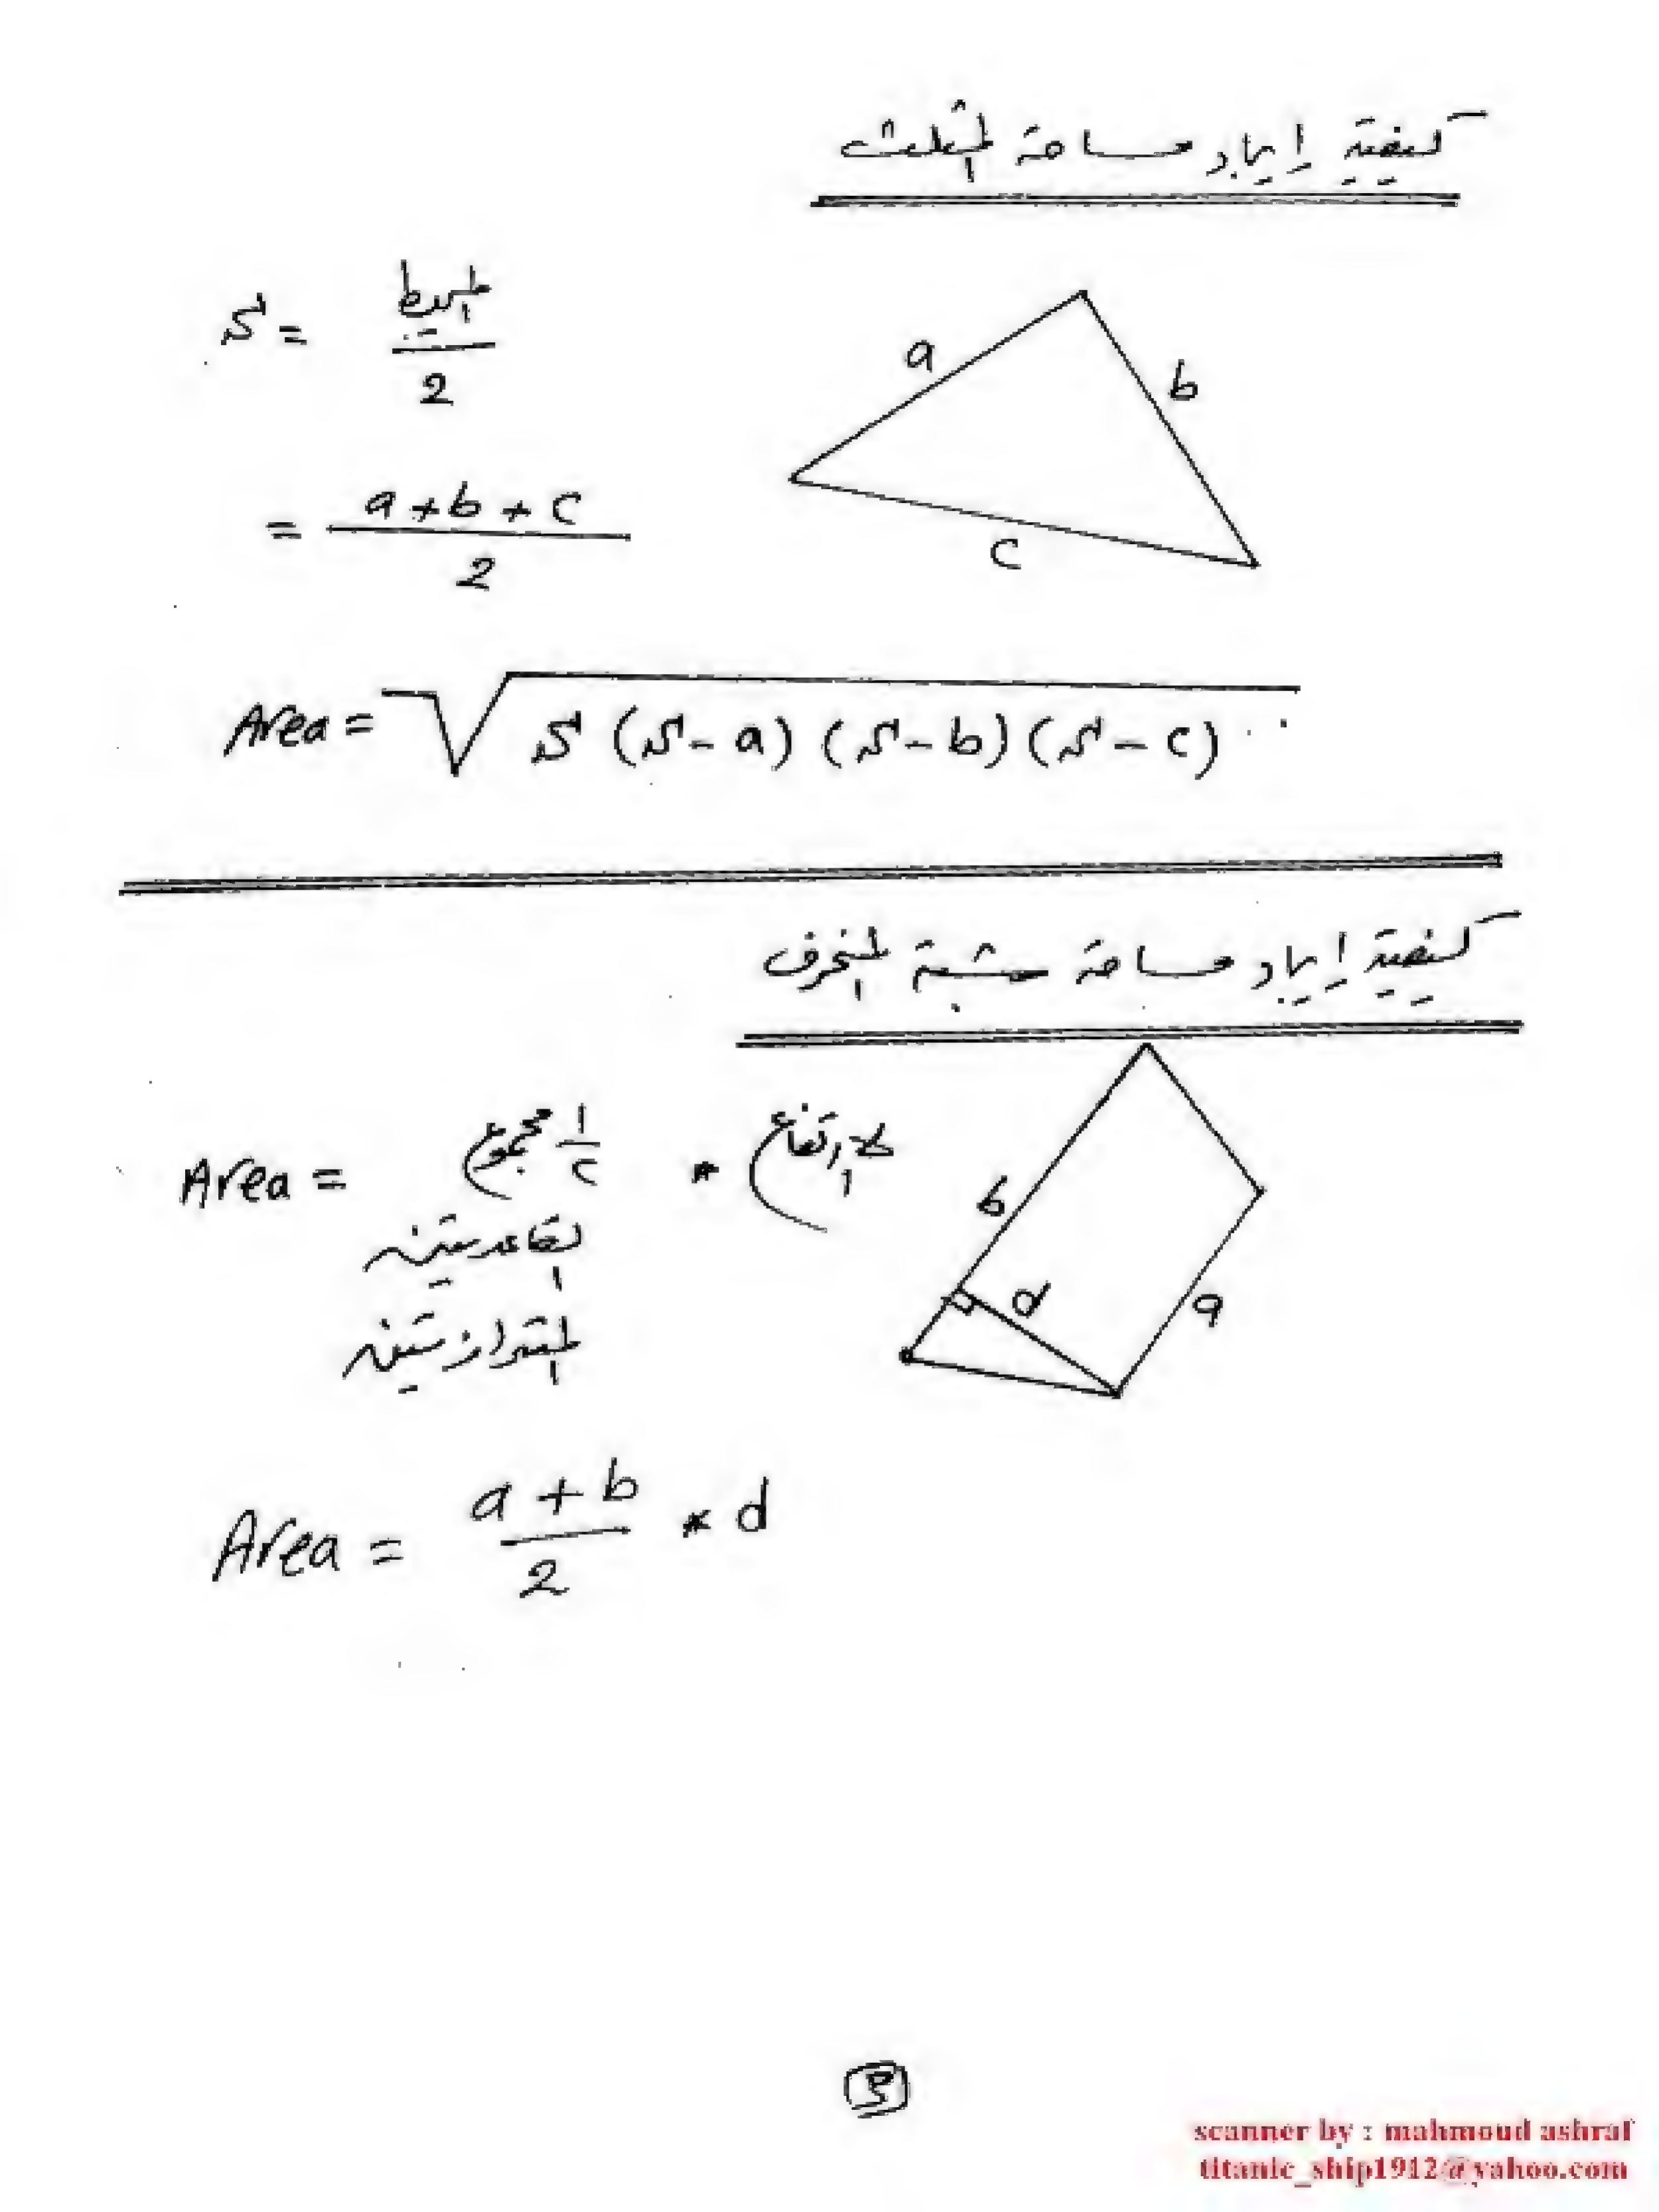 كيفية إيجاد مساحة المثلث
S = المحيط / 2
a
b
= a + b + c / 2
c
Area = √ S (S - a) (S - b) (S - c)
كيفية إيجاد مساحة شبة المنحرف
Area = ١/٢ مجموع * الارتفاع
القاعدتين
المتوازيتين
b
d
a
Area = a + b / 2 * d
٣
scanner by : mahmoud ashraf
titanic_ship1912@yahoo.com